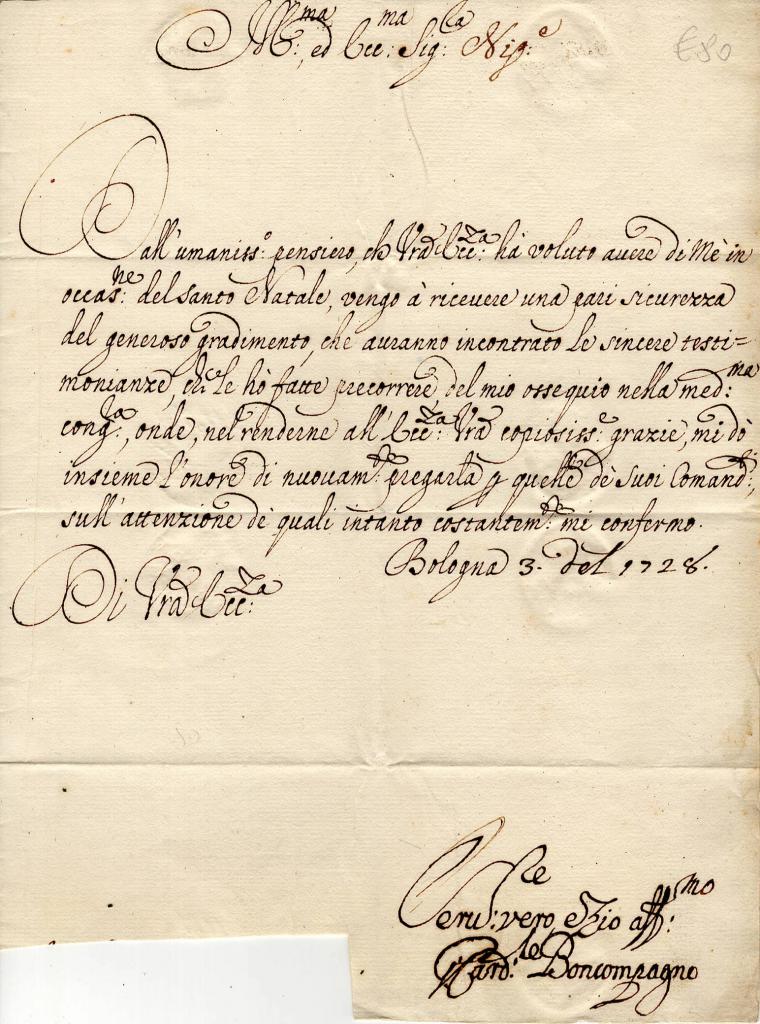 Ill:ma ed Ecc:ma Sig:ra Nip:e
E80
Dall'umaniss:o pensiero, che Vrã Ecc:za hà voluto avere di Mè in
occas:ne del Santo Natale, vengo à ricevere una pari sicurezza
del generoso gradimento, che avranno incontrato le sincere testi=
monianze, che Le hò fatte precorrere del mio ossequio nella med:ma
cong:ra, onde, nel renderne all'Ecc:za Vrã copiosiss:e grazie, mi dò
insieme l'onore di nuovam:te pregarla p quelle dè Suoi Comand:ti,
sull'attenzione dè quali intanto costantem:te mi confermo.
Bologna 3. del 1728.
Di Vrã Ecc:za
Seru:re vero, e Zio aff:mo
Card:le Boncompagno